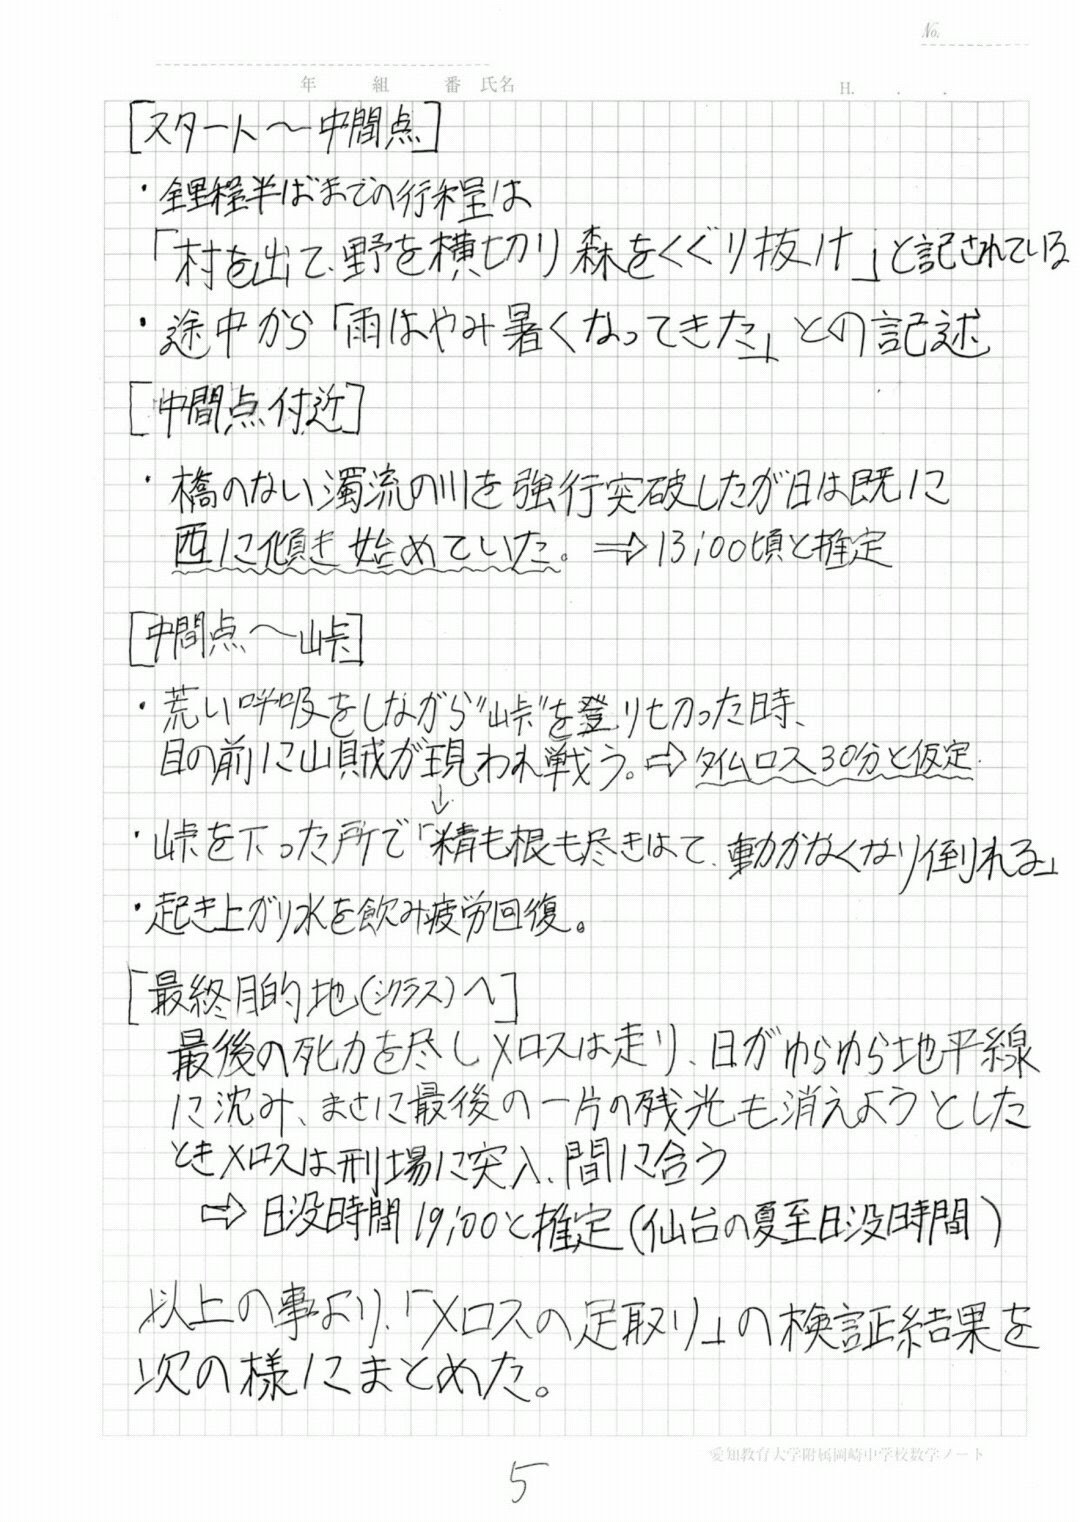 No.
年 組 番 氏名 H. . .
[スタート〜中間点]
・全里程半ばまでの行程は
「村を出て、野を横切り 森をくぐり抜け」と記されている
・途中から「雨はやみ暑くなってきた」との記述
[中間点付近]
・橋のない濁流の川を強行突破したが日は既に
西に傾き始めていた。⇒13:00頃と推定
[中間点〜峠]
・荒い呼吸をしながら"峠"を登り切った時、
目の前に山賊が現われ戦う。⇒タイムロス30分と仮定.
↓
・峠を下った所で「精も根も尽きはて、動かなくなり倒れる」
・起き上がり水を飲み疲労回復。
[最終目的地(シクラス)へ]
最後の死力を尽しメロスは走り、日がゆらゆら地平線
に沈み、まさに最後の一片の残光も消えようとした
ときメロスは刑場に突入、間に合う
⇒ 日没時間 19:00と推定(仙台の夏至日没時間)
以上の事より、「メロスの足取り」の検証結果を
次の様にまとめた。
愛知教育大学附属岡崎中学校数学ノート
5